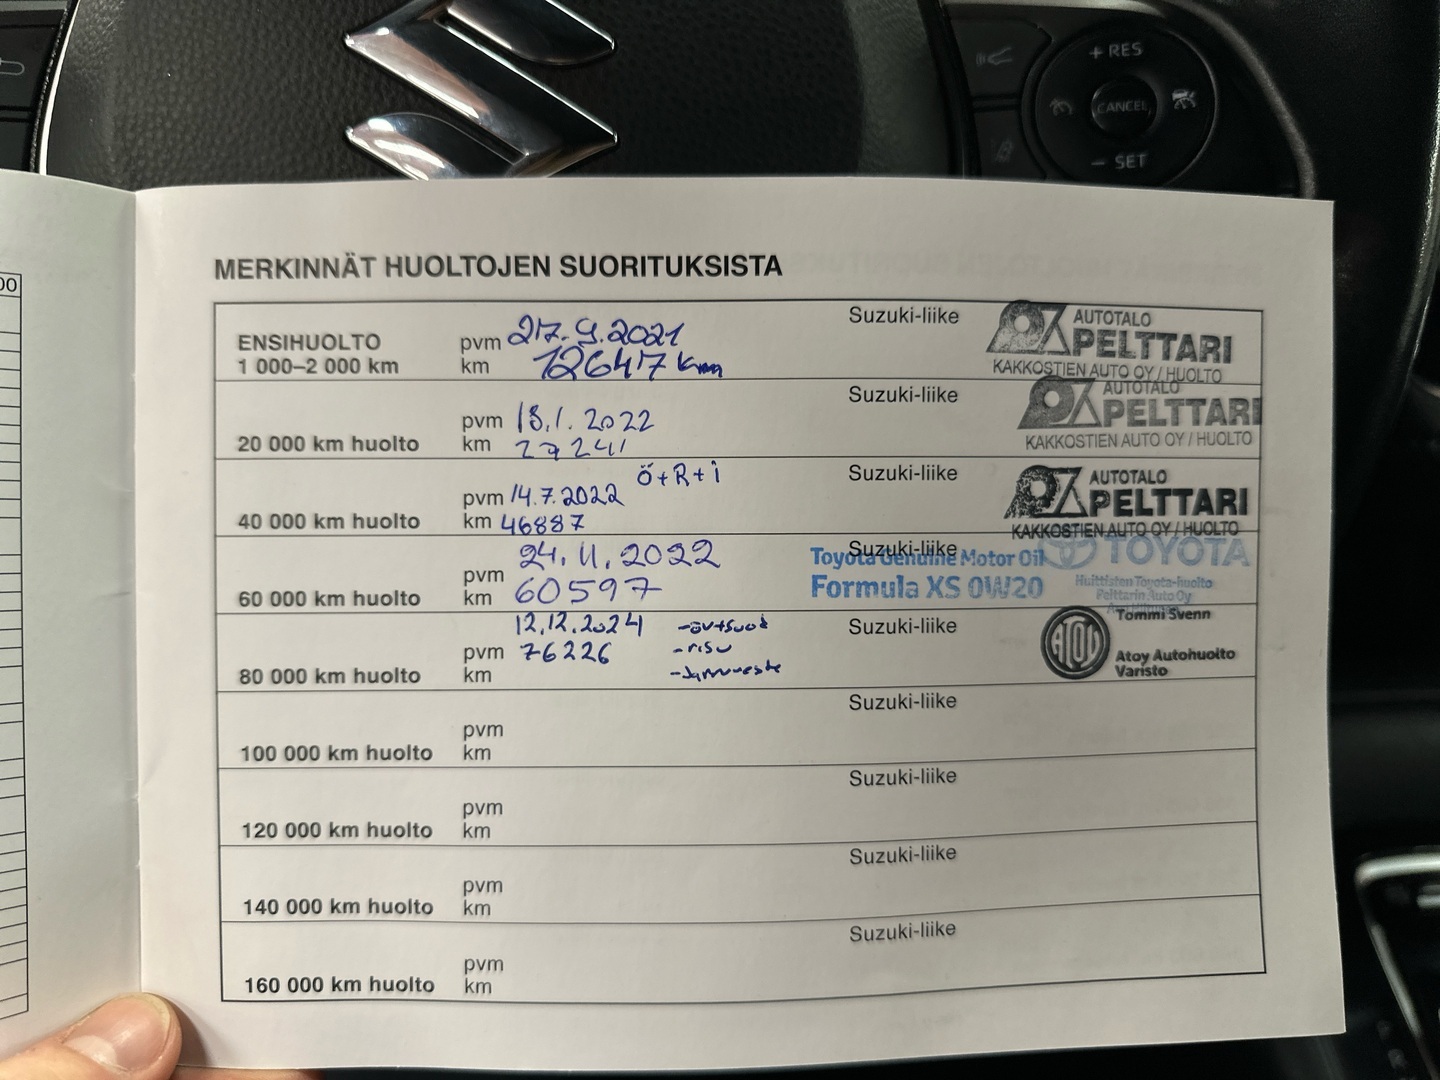 + RES
CANCEL
− SET
00
MERKINNÄT HUOLTOJEN SUORITUKSISTA
ENSIHUOLTO
1 000–2 000 km
pvm 27.9.2021
km 12647 km
Suzuki-liike
AUTOTALO
PELTTARI
KAKKOSTIEN AUTO OY / HUOLTO
20 000 km huolto
pvm 18.1.2022
km 27241
Suzuki-liike
AUTOTALO
PELTTARI
KAKKOSTIEN AUTO OY / HUOLTO
40 000 km huolto
Ö+R+i
pvm 14.7.2022
km 46887
Suzuki-liike
AUTOTALO
PELTTARI
KAKKOSTIEN AUTO OY / HUOLTO
60 000 km huolto
24.11.2022
pvm
km 60597
Suzuki-liike
Toyota Genuine Motor Oil
Formula XS 0W20
TOYOTA
Huittisten Toyota-huolto
Pelttarin Auto Oy
80 000 km huolto
12.12.2024
pvm 76226
km
-risu
-Jarruneste
Suzuki-liike
ATOY
Tommi Svenn
Atoy Autohuolto
Varisto
100 000 km huolto
pvm
km
Suzuki-liike
120 000 km huolto
pvm
km
Suzuki-liike
140 000 km huolto
pvm
km
Suzuki-liike
160 000 km huolto
pvm
km
Suzuki-liike